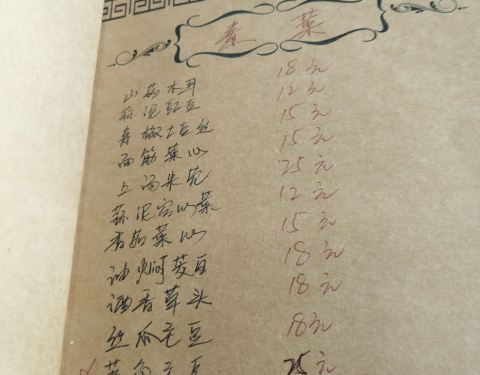 素菜
山药木耳 18元
蒜泥豇豆 12元
青椒土豆丝 15元
面筋菜心 15元
上汤米苋 25元
蒜泥空心菜 12元
香菇菜心 15元
油焖 18元
酒香草头 18元
丝瓜毛豆 18元
毛豆 25元